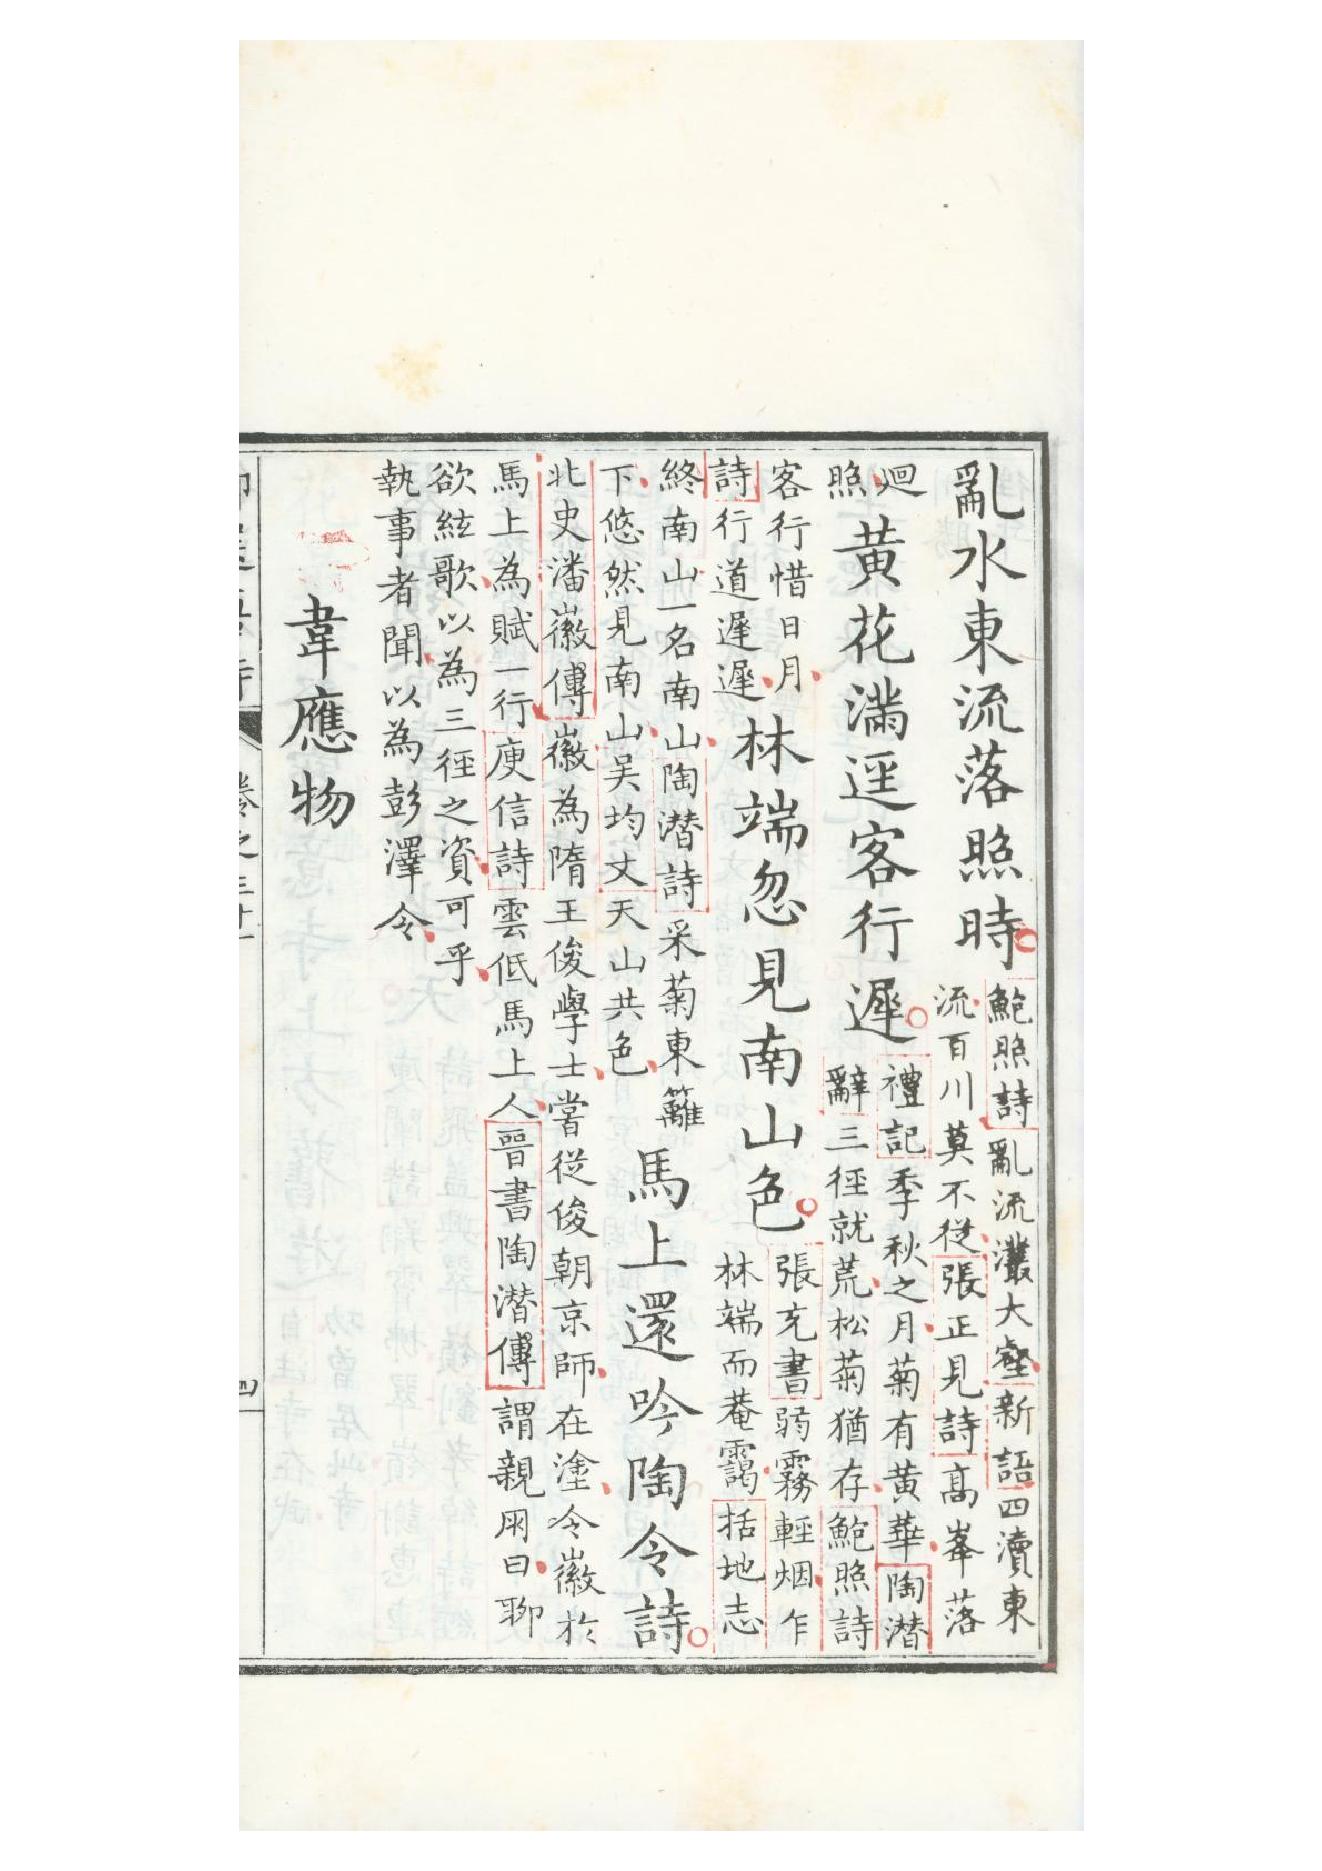 亂水東流落照時
鮑照詩亂流灇大壑新語四瀆東
流百川莫不從張正見詩高峯落
迴
照
黃花滿逕客行遲
禮記季秋之月菊有黃華陶潛
辭三徑就荒松菊猶存鮑照詩
客行惜日月
詩行道遲遲
林端忽見南山色
張充書弱霧輕烟乍
林端而菴靄括地志
終南山一名南山陶潛詩采菊東籬
下悠然見南山吳均文天山共色
馬上還吟陶令詩
北史潘徽傳徽為隋王俊學士嘗從俊朝京師在塗令徽於
馬上為賦一行庾信詩雲低馬上人晉書陶潛傳謂親朋曰聊
欲絃歌以為三徑之資可乎
執事者聞以為彭澤令
韋應物
卷之三十一
四